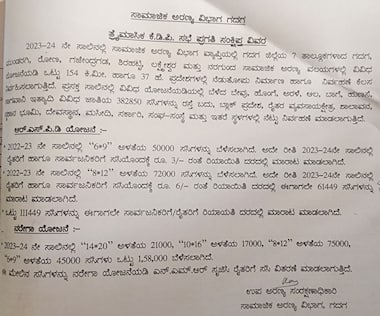 ಸಾಮಾಜಿಕ ಅರಣ್ಯ ವಿಭಾಗ ಗದಗ
ತ್ರೈಮಾಸಿಕ ಕೆ.ಡಿ.ಪಿ. ಸಭೆ ಪ್ರಗತಿ ಸಂಕ್ಷಿಪ್ತ ವಿವರ
2023-24 ನೇ ಸಾಲಿನಲ್ಲಿ ಸಾಮಾಜಿಕ ಅರಣ್ಯ ವಿಭಾಗ ವ್ಯಾಪ್ತಿಯಲ್ಲಿ ಗದಗ ಜಿಲ್ಲೆಯ 7 ತಾಲ್ಲೂಕಗಳಾದ ಗದಗ,
ಮುಂಡರಗಿ, ರೋಣ, ಗಜೇಂದ್ರಗಡ, ಶಿರಹಟ್ಟಿ, ಲಕ್ಷ್ಮೇಶ್ವರ ಮತ್ತು ನರಗುಂದ ಸಾಮಾಜಿಕ ಅರಣ್ಯ ವಲಯಗಳಲ್ಲಿ ವಿವಿಧ
ಯೋಜನೆಯಡಿ ಒಟ್ಟು 154 ಕಿ.ಮೀ. ಹಾಗೂ 37 ಹೆ. ಪ್ರದೇಶಗಳಲ್ಲಿ ನೆಡುತೋಪು ನಿರ್ಮಾಣ ಹಾಗೂ ನಿರ್ವಹಣೆ ಕೆಲಸ
ನಿರ್ವಹಿಸಲಾಗುತ್ತಿದೆ. ಪ್ರಸಕ್ತ ಸಾಲಿನಲ್ಲಿ ವಿವಿಧ ಯೋಜನೆಯಡಿಯಲ್ಲಿ ಬೆಳೆದ ಬೇವು, ಹೊಂಗೆ, ಅರಳಿ, ಆಲ, ಬಾಗೆ, ಹುಣಸೆ,
ಇತ್ಯಾದಿ ವಿವಿಧ ಜಾತಿಯ 382850 ಸಸಿಗಳನ್ನು ರಸ್ತೆ ಬದು, ಬ್ಲಾಕ್ ಪ್ರದೇಶ, ರೈತರ ವ್ಯವಸಾಯಕ್ಷೇತ್ರ, ಶಾಲಾವನ,
ಭೂಮಿ, ದೇವಸ್ಥಾನ, ಮಸೀದಿ, ಸರ್ಕಾರಿ, ಸಂಘ-ಸಂಸ್ಥೆ ಮತ್ತು ಇತರೆ ಸ್ಥಳಗಳಲ್ಲಿ ನೆಟ್ಟು ನಿರ್ವಹಣೆ ಮಾಡಲಾಗುತ್ತಿದೆ.
ಆರ್.ಎಸ್.ಪಿ.ಡಿ ಯೋಜನೆ :-
• 2022-23 ನೇ ಸಾಲಿನಲ್ಲಿ "6*9" ಅಳತೆಯ 50000 ಸಸಿಗಳನ್ನು ಬೆಳೆಸಲಾಗಿದೆ. ಅದೇ ರೀತಿ 2023-24ನೇ
ರೈತರಿಗೆ ಹಾಗೂ ಸಾರ್ವಜನಿಕರಿಗೆ ಸಸಿಯೊಂದಕ್ಕೆ ರೂ. 3/- ರಂತೆ ರಿಯಾಯಿತಿ ದರದಲ್ಲಿ ಮಾರಾಟ ಮಾಡಲಾಗಿದೆ.
• 2022-23 ನೇ ಸಾಲಿನಲ್ಲಿ "8*12" ಅಳತೆಯ 72000 ಸಸಿಗಳನ್ನು ಬೆಳೆಸಲಾಗಿದೆ. ಅದೇ ರೀತಿ 2023-24ನೇ
ರೈತರಿಗೆ ಹಾಗೂ ಸಾರ್ವಜನಿಕರಿಗೆ ಸಸಿಯೊಂದಕ್ಕೆ ರೂ. 6/- ರಂತೆ ರಿಯಾಯಿತಿ ದರದಲ್ಲಿ ಈಗಾಗಲೇ 61449 ಸಸಿಗಳನ್ನು
ಮಾರಾಟ ಮಾಡಲಾಗಿದೆ.
• ಒಟ್ಟು 111449 ಸಸಿಗಳನ್ನು ಈಗಾಗಲೇ ಸಾರ್ವಜನಿಕರಿಗೆ/ರೈತರಿಗೆ ರಿಯಾಯಿತಿ ದರದಲ್ಲಿ ಮಾರಾಟ ಮಾಡಲಾಗಿದೆ.
ನರೇಗಾ ಯೋಜನೆ :-
• 2023-24 ನೇ ಸಾಲಿನಲ್ಲಿ "14*20" ಅಳತೆಯ 21000, "10*16" ಅಳತೆಯ 17000, "8*12" ಅಳತೆಯ 75000,
"6*9" ಅಳತೆಯ 45000 ಸಸಿಗಳು ಒಟ್ಟು 1,58,000 ಬೆಳೆಸಲಾಗಿದೆ.
• ಈ ಮೇಲಿನ ಸಸಿಗಳನ್ನು ನರೇಗಾ ಯೋಜನೆಯಡಿ ಎನ್.ಎಮ್.ಆರ್ ಸೃಜಿಸಿ ರೈತರಿಗೆ ಸಸಿ ವಿತರಣೆ ಮಾಡಲಾಗುತ್ತಿದೆ.
ಉಪ ಅರಣ್ಯ ಸಂರಕ್ಷಣಾಧಿಕಾರಿ
ಸಾಮಾಜಿಕ ಅರಣ್ಯ ವಿಭಾಗ, ಗದಗ